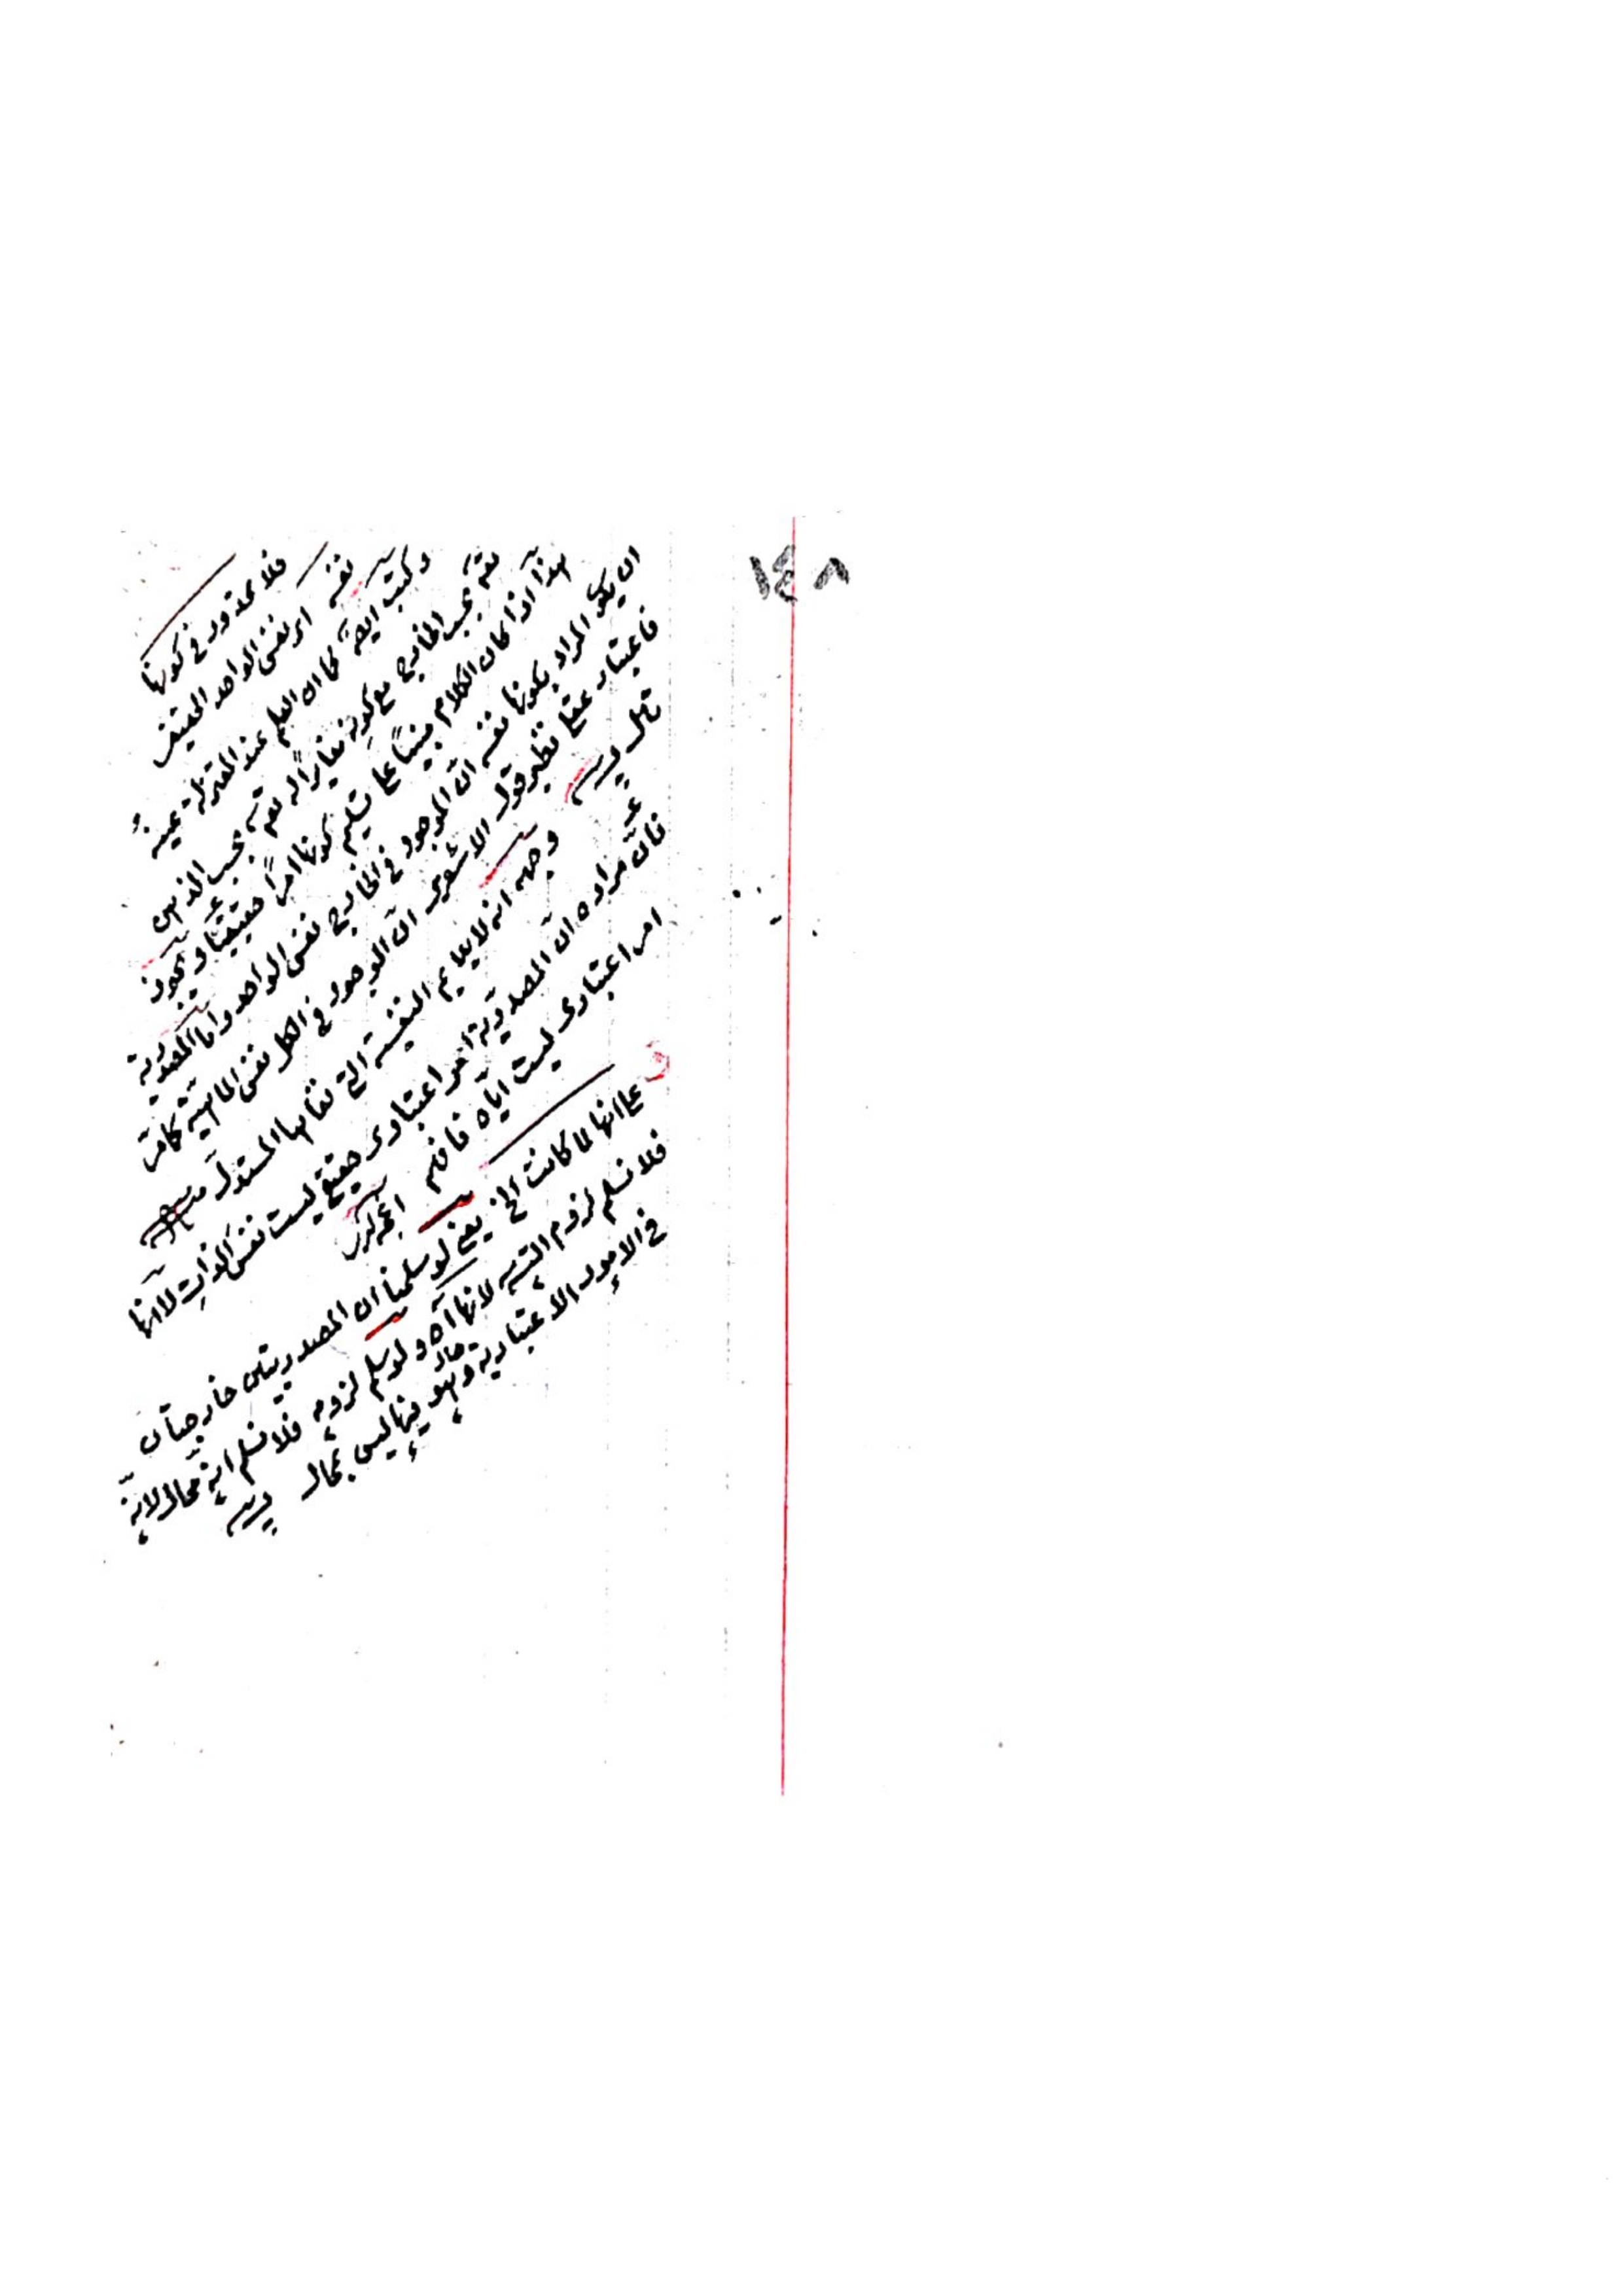 ١٤٨
فلا محذور فى كونها
نفسه اى نفس الواحد الحقيقى
وكتب ايضا كما ان العلم عند المعتزلة عينه
تعم بحسب الخارج مع كونه مغايرا له تعم بحسب الذهن
هذا اذا كان الكلام مبنيا على تسليم كونها امرا حقيقيا ويجوز
ان يكو المراد بكونها نفسه ان الموجود فى الخارج نفس الواحد واما المصدرية
فاعتبار عقلى نظير قول الاشعرى ان الوجود فى الكل نفس الماهية كما مر
تأمل
وجهه انه لا يلايم النفسية التى نفاها المستدل
فان مراده ان المصدرية امر اعتبارى حقيقى ليست نفس الذات لانها
امر اعتبارى ليست اياه فافهم
على انها لما كانت الخ يعنى لو سلمنا ان المصدريتين خارجيتان
فلا نسلم لزوم التسلسل لانها اه ولو سلم لزومه فلا نسلم انه محال لانه
فى الامور الاعتبارية وهو فيها ليس بمحال